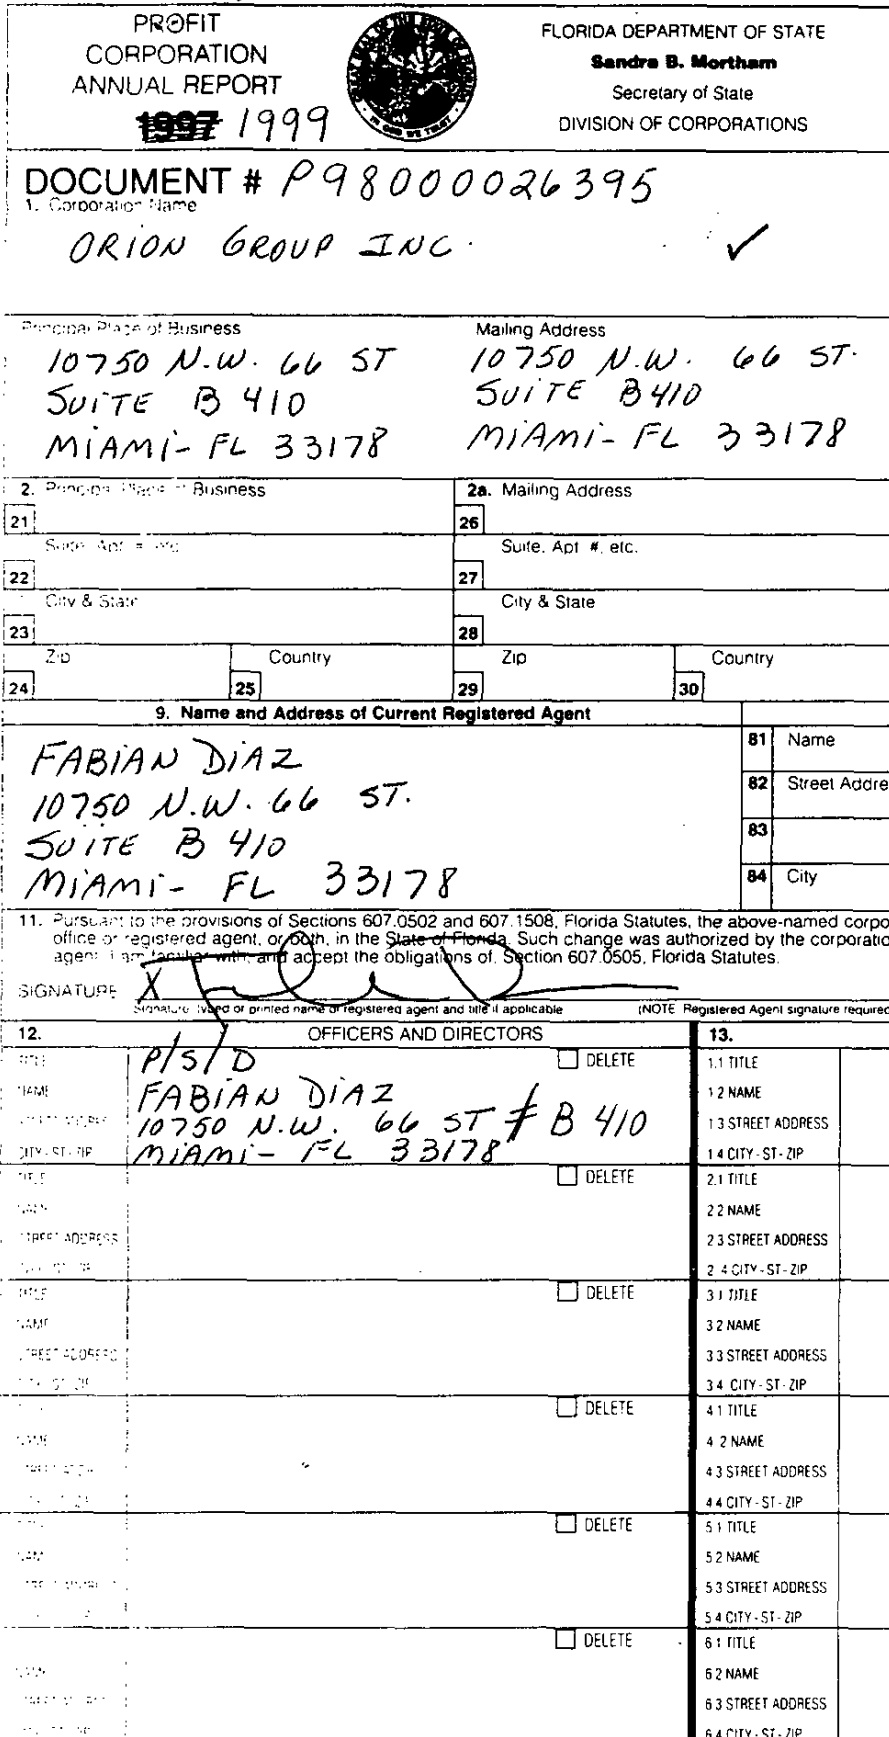 PROFIT
CORPORATION
ANNUAL REPORT
1997 1999
FLORIDA DEPARTMENT OF STATE
Sandra B. Mortham
Secretary of State
DIVISION OF CORPORATIONS
DOCUMENT # P98000026395
1. Corporation Name
ORION GROUP INC.
Principal Place of Business
10750 N.W. 66 ST
SUITE B 410
MIAMI- FL 33178
Mailing Address
10750 N.W. 66 ST.
SUITE B410
MIAMI- FL 33178
2. Principal Place of Business
2a. Mailing Address
21
26
Suite, Apt. #, etc.
Suite, Apt. #, etc.
22
27
City & State
City & State
23
28
Zip
Country
Zip
Country
24
25
29
30
9. Name and Address of Current Registered Agent
FABIAN DIAZ
10750 N.W. 66 ST.
SUITE B 410
MIAMI- FL 33178
81 Name
82 Street Addre
83
84 City
11. Pursuant to the provisions of Sections 607.0502 and 607.1508, Florida Statutes, the above-named corpo
office or registered agent, or both, in the State of Florida. Such change was authorized by the corporatio
agent. I am familiar with, and accept the obligations of, Section 607.0505, Florida Statutes.
SIGNATURE X
Signature, typed or printed name of registered agent and title if applicable (NOTE Registered Agent signature required
12. OFFICERS AND DIRECTORS 13.
TITLE P/S/D DELETE
NAME FABIAN DIAZ
STREET ADDRESS 10750 N.W. 66 ST # B 410
CITY-ST-ZIP MIAMI- FL 33178
1.1 TITLE
1.2 NAME
1.3 STREET ADDRESS
1.4 CITY-ST-ZIP
TITLE DELETE
NAME
STREET ADDRESS
2.1 TITLE
2.2 NAME
2.3 STREET ADDRESS
2.4 CITY-ST-ZIP
TITLE DELETE
NAME
STREET ADDRESS
3.1 TITLE
3.2 NAME
3.3 STREET ADDRESS
3.4 CITY-ST-ZIP
DELETE
NAME
4.1 TITLE
4.2 NAME
4.3 STREET ADDRESS
4.4 CITY-ST-ZIP
DELETE
NAME
5.1 TITLE
5.2 NAME
5.3 STREET ADDRESS
5.4 CITY-ST-ZIP
DELETE
6.1 TITLE
6.2 NAME
6.3 STREET ADDRESS
6.4 CITY-ST-ZIP